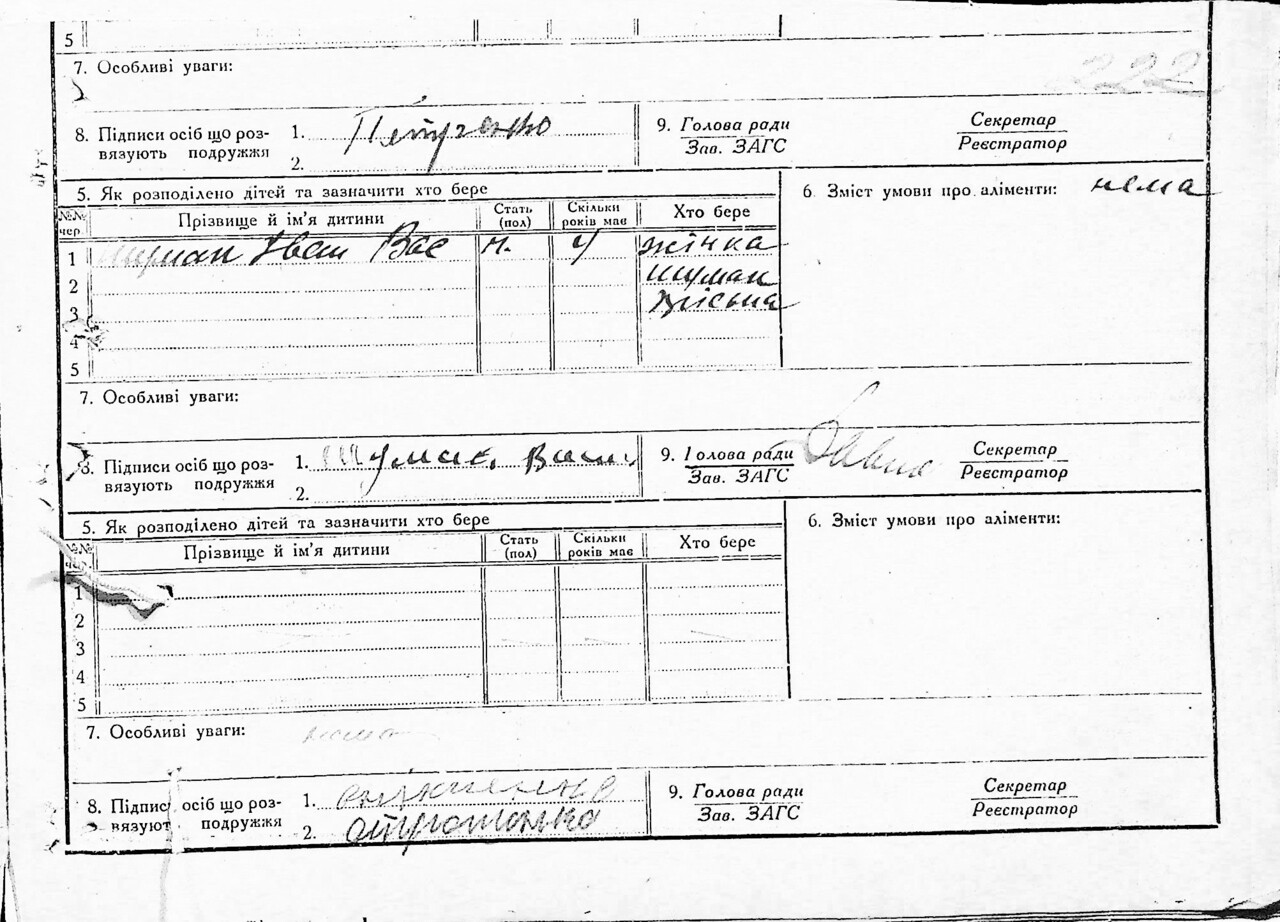 5
7. Особливі уваги:
222
8. Підписи осіб що роз-
вязують подружжя
1. Петренко
2.
9. Голова ради
Зав. ЗАГС
Секретар
Реєстратор
5. Як розподілено дітей та зазначити хто бере
6. Зміст умови про аліменти: нема
№№ чер. Прізвище й ім'я дитини Стать (пол) Скільки років має Хто бере
1 Шуман Іван Вас ч. 4 жінка
2 Шуман
3
4
5
7. Особливі уваги:
8. Підписи осіб що роз-
вязують подружжя
1. Шуман
2.
9. Голова ради
Зав. ЗАГС
Секретар
Реєстратор
5. Як розподілено дітей та зазначити хто бере
6. Зміст умови про аліменти:
№№ чер. Прізвище й ім'я дитини Стать (пол) Скільки років має Хто бере
1
2
3
4
5
7. Особливі уваги: нема
8. Підписи осіб що роз-
вязують подружжя
1.
2.
9. Голова ради
Зав. ЗАГС
Секретар
Реєстратор